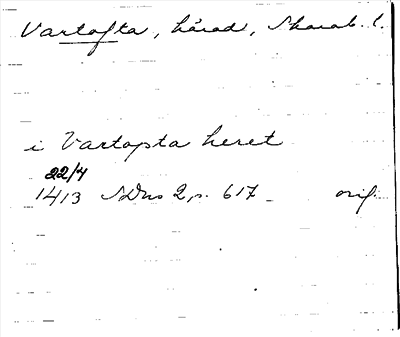 Vartofta, härad, Skarab. l.
i Vartopta heret
22/4
1413 SDns 2, p. 617 orig.